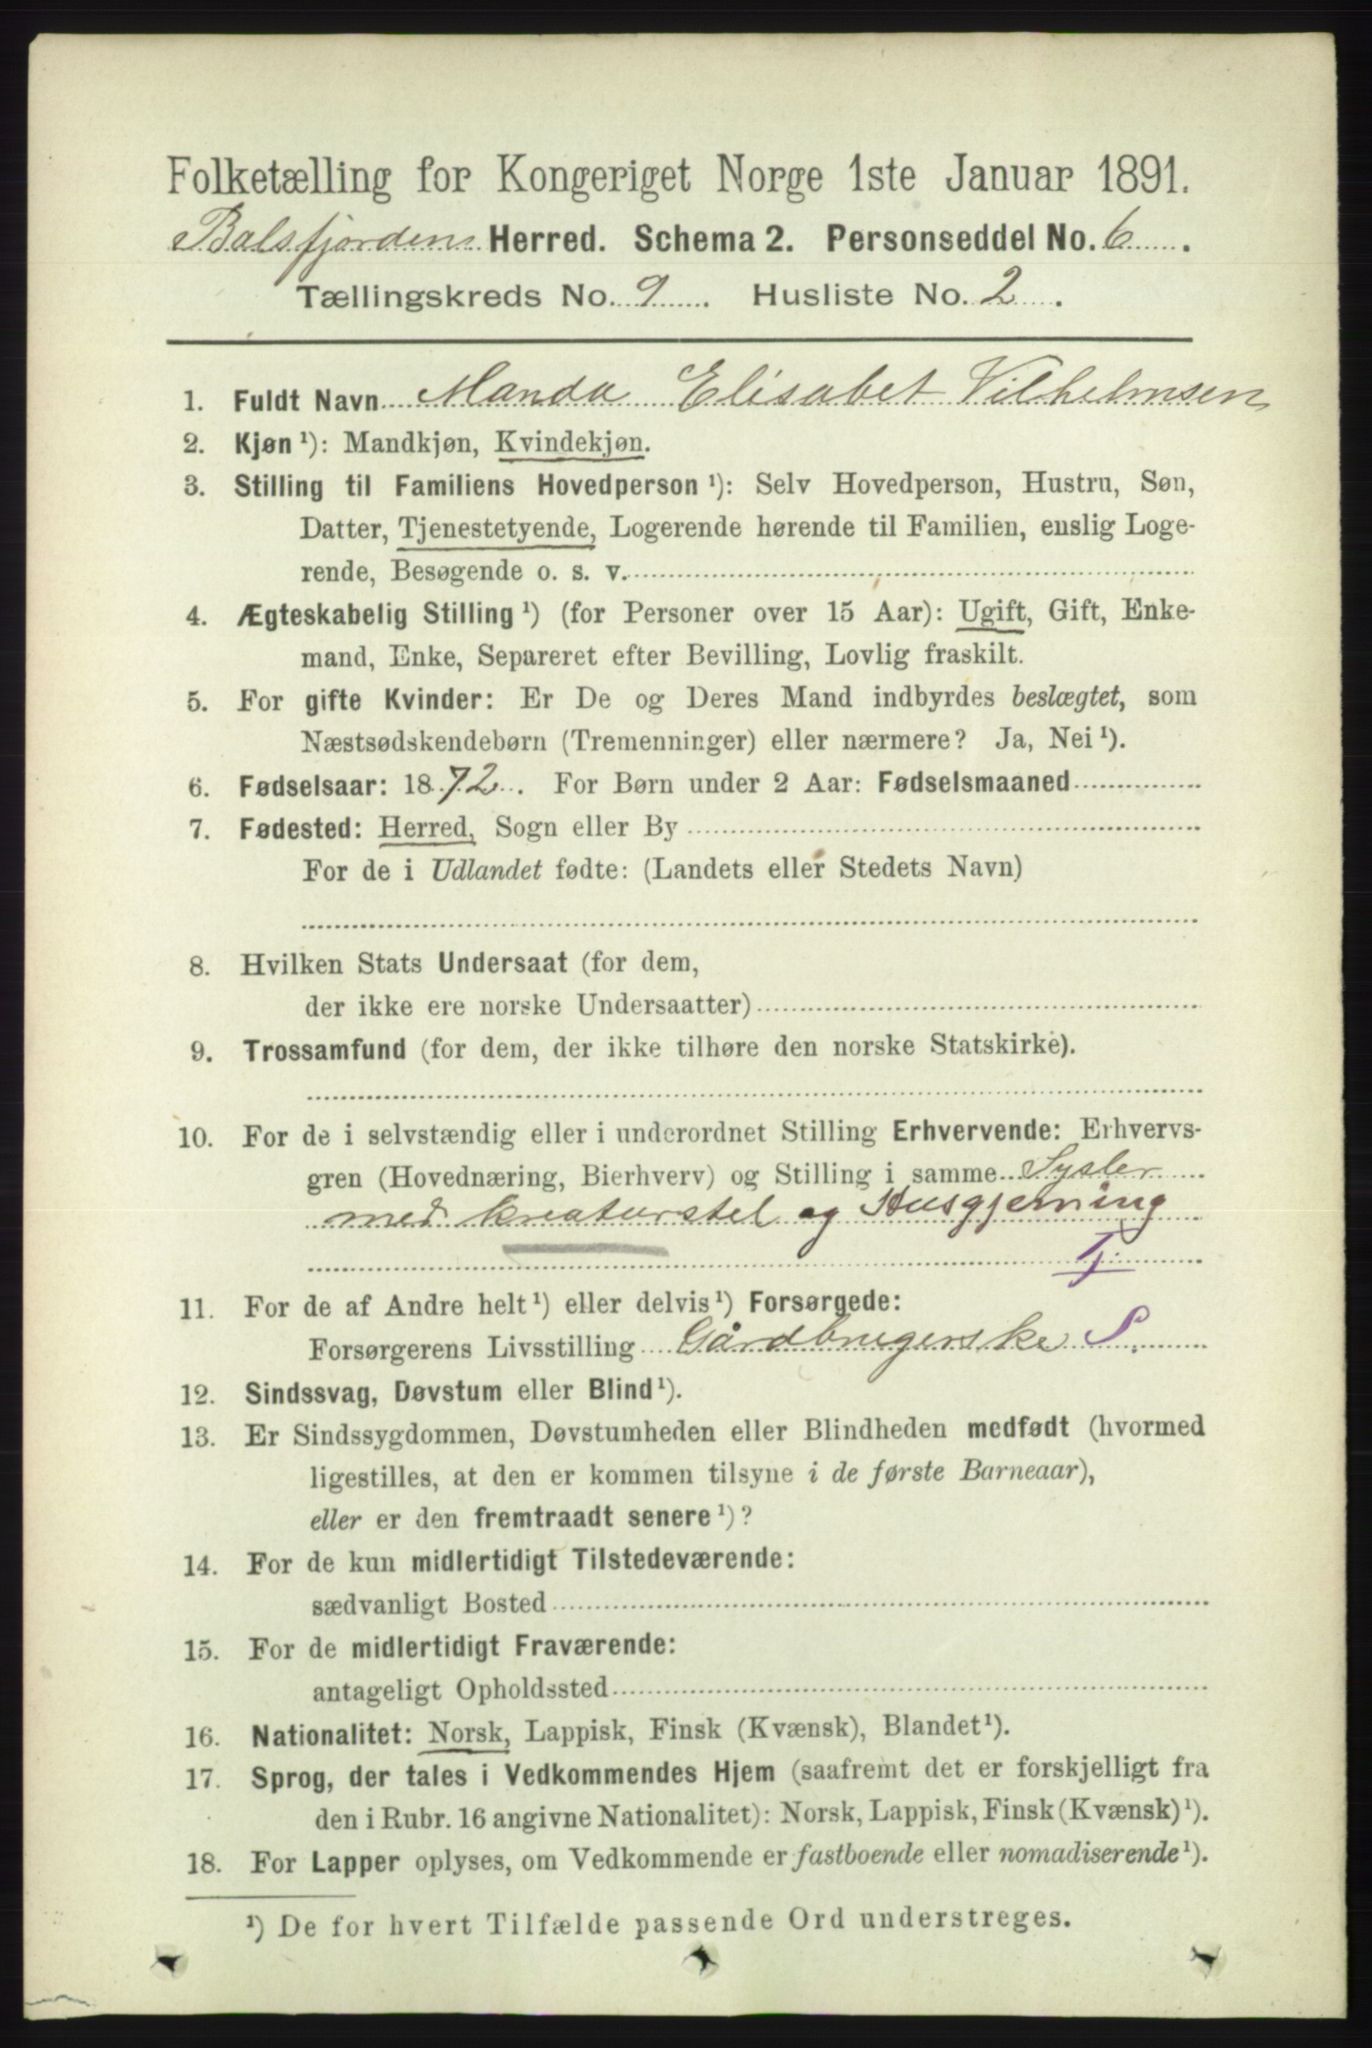 Folketælling for Kongeriget Norge 1ste Januar 1891.
Balsfjordens Herred. Schema 2. Personseddel No. 6.
Tællingskreds No. 9. Husliste No. 2.
1. Fuldt Navn Manda Elisabet Vilhelmsen
2. Kjøn ¹): Mandkjøn, Kvindekjøn.
3. Stilling til Familiens Hovedperson ¹): Selv Hovedperson, Hustru, Søn,
Datter, Tjenestetyende, Logerende hørende til Familien, enslig Loge-
rende, Besøgende o. s. v.
4. Ægteskabelig Stilling ¹) (for Personer over 15 Aar): Ugift, Gift, Enke-
mand, Enke, Separeret efter Bevilling, Lovlig fraskilt.
5. For gifte Kvinder: Er De og Deres Mand indbyrdes beslægtet, som
Næstsødskendebørn (Tremenninger) eller nærmere? Ja, Nei ¹).
6. Fødselsaar: 1872. For Børn under 2 Aar: Fødselsmaaned
7. Fødested: Herred, Sogn eller By
For de i Udlandet fødte: (Landets eller Stedets Navn)
8. Hvilken Stats Undersaat (for dem,
der ikke ere norske Undersaatter)
9. Trossamfund (for dem, der ikke tilhøre den norske Statskirke).
10. For de i selvstændig eller i underordnet Stilling Erhvervende: Erhvervs-
gren (Hovednæring, Bierhverv) og Stilling i samme Sysler
med kreaturstel og Husgjerning
Tj.
11. For de af Andre helt ¹) eller delvis ¹) Forsørgede:
Forsørgerens Livsstilling Gårdbrugerske S.
12. Sindssvag, Døvstum eller Blind ¹).
13. Er Sindssygdommen, Døvstumheden eller Blindheden medfødt (hvormed
ligestilles, at den er kommen tilsyne i de første Barneaar),
eller er den fremtraadt senere ¹)?
14. For de kun midlertidigt Tilstedeværende:
sædvanligt Bosted
15. For de midlertidigt Fraværende:
antageligt Opholdssted
16. Nationalitet: Norsk, Lappisk, Finsk (Kvænsk), Blandet ¹).
17. Sprog, der tales i Vedkommendes Hjem (saafremt det er forskjelligt fra
den i Rubr. 16 angivne Nationalitet): Norsk, Lappisk, Finsk (Kvænsk) ¹).
18. For Lapper oplyses, om Vedkommende er fastboende eller nomadiserende ¹).
¹) De for hvert Tilfælde passende Ord understreges.